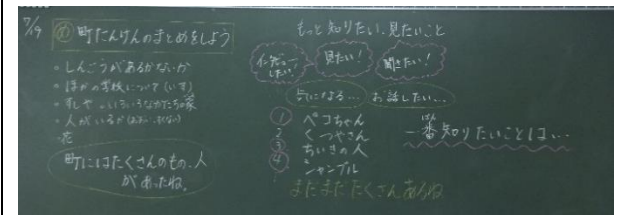 7/19
め 町たんけんのまとめをしよう
・しんごうがあるかないか
・ほかの学校について(いす)
・すしや
・人がいるか
・花
町にはたくさんのもの、人
があったね。
もっと知りたい、見たいこと
インタビュー
したい!
見たい!
聞きたい!
気になる…
お話したい…
① ペコちゃん
2 くつやさん
③ ちいきの人
④ ジャンプル
まだまだたくさんあるね
一番知りたいことは…
ばん